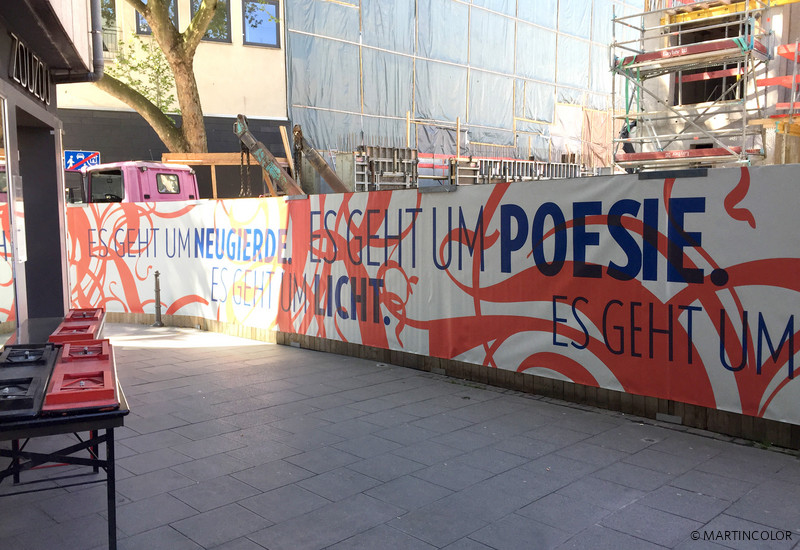 ZOUZOU
ES GEHT UM NEUGIERDE. ES GEHT UM POESIE.
ES GEHT UM LICHT. ES GEHT UM
© MARTINCOLOR